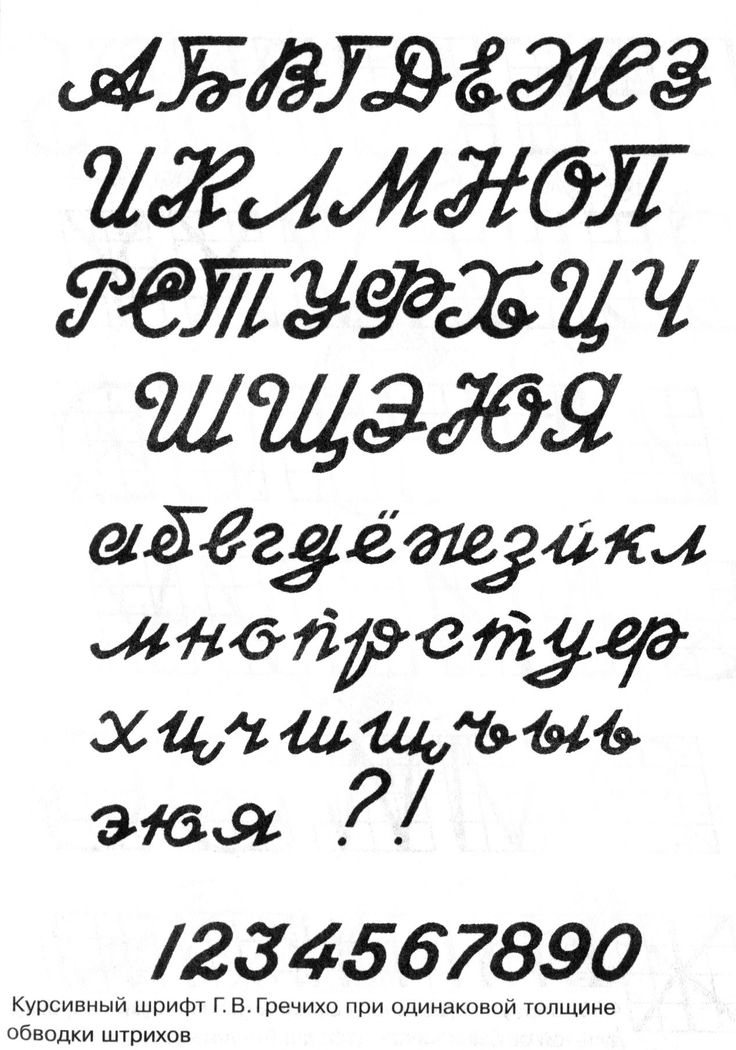 АБВГДЕЖЗ
ИКЛМНОП
РСТУФХЦЧ
ШЩЭЮЯ
абвгдёжзйкл
мнопрстуф
хцчшщъыь
эюя ?!
1234567890
Курсивный шрифт Г. В. Гречихо при одинаковой толщине
обводки штрихов